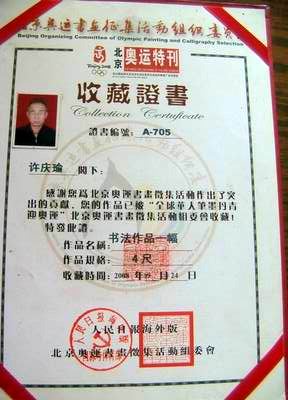 北京奥运书画征集活動組織委員會
Beijing Organizing Committee of Olympic Painting and Calligraphy Selection
Beijing 2008
北京
奥运特刊
收藏證書
Collection Certificate
證書編號: A-705
许庆瑜 閣下:
感謝您爲北京奥運書畫徵集活動作出了突
出的貢獻, 您的作品已被“全球華人筆墨丹青
迎奥運”北京奥運書畫徵集活動組委會收藏!
特發此證。
作品名稱: 书法作品一幅
作品規格: 4尺
收藏時間: 2008 年 月 24 日
人民日報海外版
北京奥運書畫徵集活動組委會